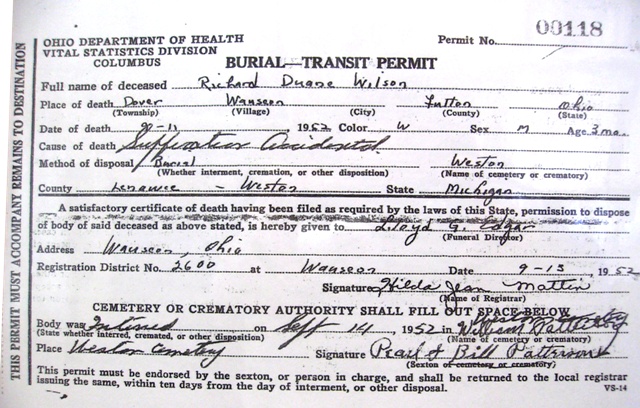 OHIO DEPARTMENT OF HEALTH
VITAL STATISTICS DIVISION
COLUMBUS
Permit No. 00118
BURIAL-TRANSIT PERMIT
Full name of deceased Richard Duane Wilson
Place of death Dover Wauseon Fulton Ohio
(Township) (Village) (City) (County) (State)
Date of death 1952 Color W Sex M Age 3 mo.
Cause of death Suffocation Accidental
Method of disposal Burial Weston
(Whether interment, cremation, or other disposition) (Name of cemetery or crematory)
County Lenawee - Weston State Michigan
A satisfactory certificate of death having been filed as required by the laws of this State, permission to dispose
of body of said deceased as above stated, is hereby given to Lloyd G. Edgar
(Funeral Director)
Address Wauseon, Ohio
Registration District No. 2600 at Wauseon Date 9-13, 1952
Signature Hilda Jean Mattin
(Name of Registrar)
CEMETERY OR CREMATORY AUTHORITY SHALL FILL OUT SPACE BELOW
Body was on Sept 14, 1952 in
(State whether interred, cremated, or other disposition) (Name of cemetery or crematory)
Place Weston Cemetery Signature Pearl & Bill Patterson
(Sexton of cemetery or crematory)
This permit must be endorsed by the sexton, or person in charge, and shall be returned to the local registrar
issuing the same, within ten days from the day of interment, or other disposal.
VS-14
THIS PERMIT MUST ACCOMPANY REMAINS TO DESTINATION